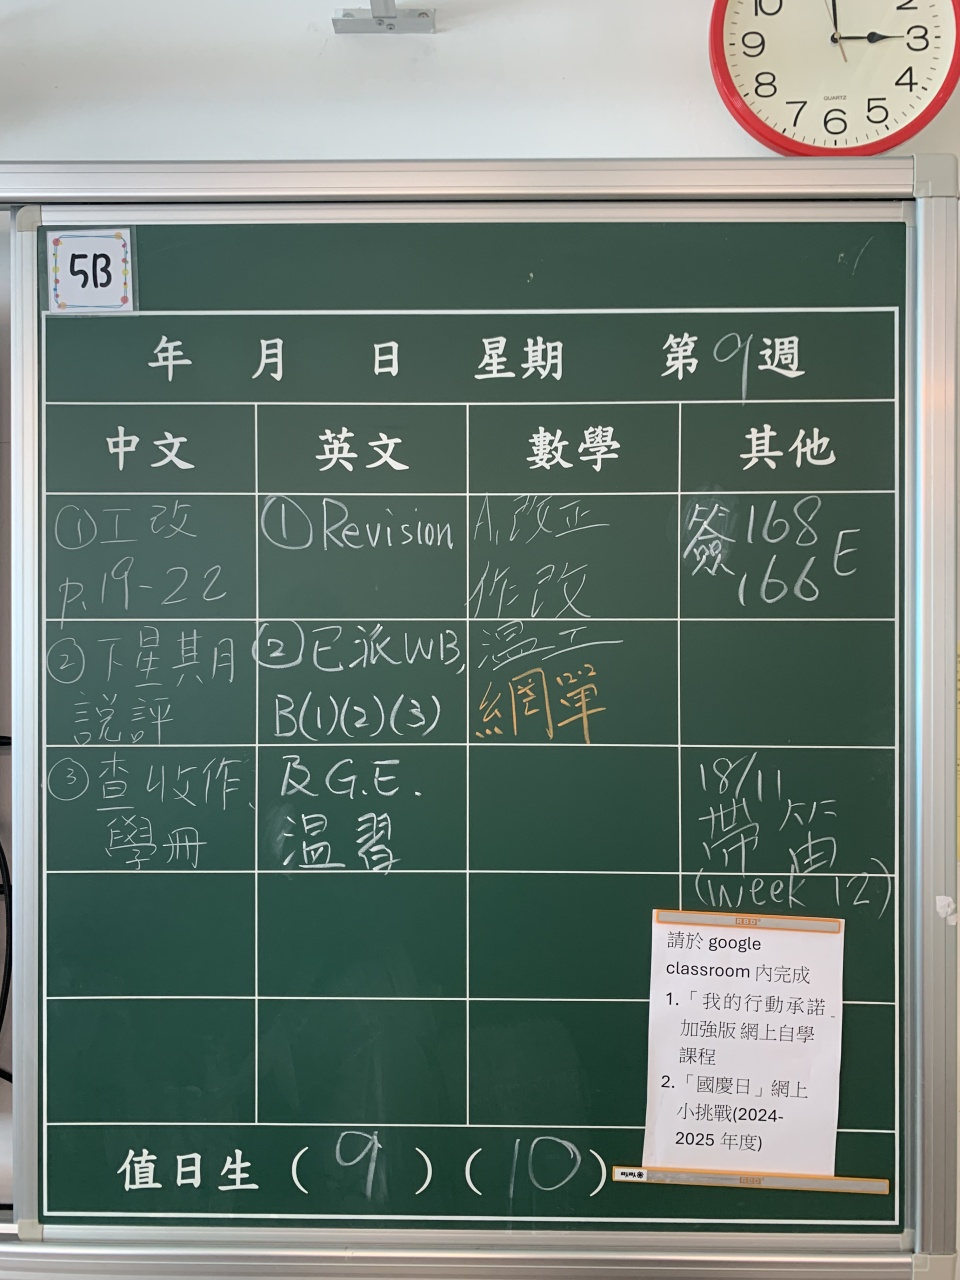 10
2
9
3
8
4
QUARTZ
7
6
5
5B
年 月 日 星期 第9週
中文 英文 數學 其他
①工改
p.19-22
②下星期月
說評
③查收作,
學冊
①Revision
②已派WB,
B(1)(2)(3)
及G.E.
溫習
A.改正
作改
溫工
網單12.2
簽168 E
166
18/11
帶笛
(week 12)
請於 google
classroom 內完成
1.「我的行動承諾
加強版 網上自學
課程
2.「國慶日」網上
小挑戰(2024-
2025 年度)
值日生 ( 9 ) ( 10 )